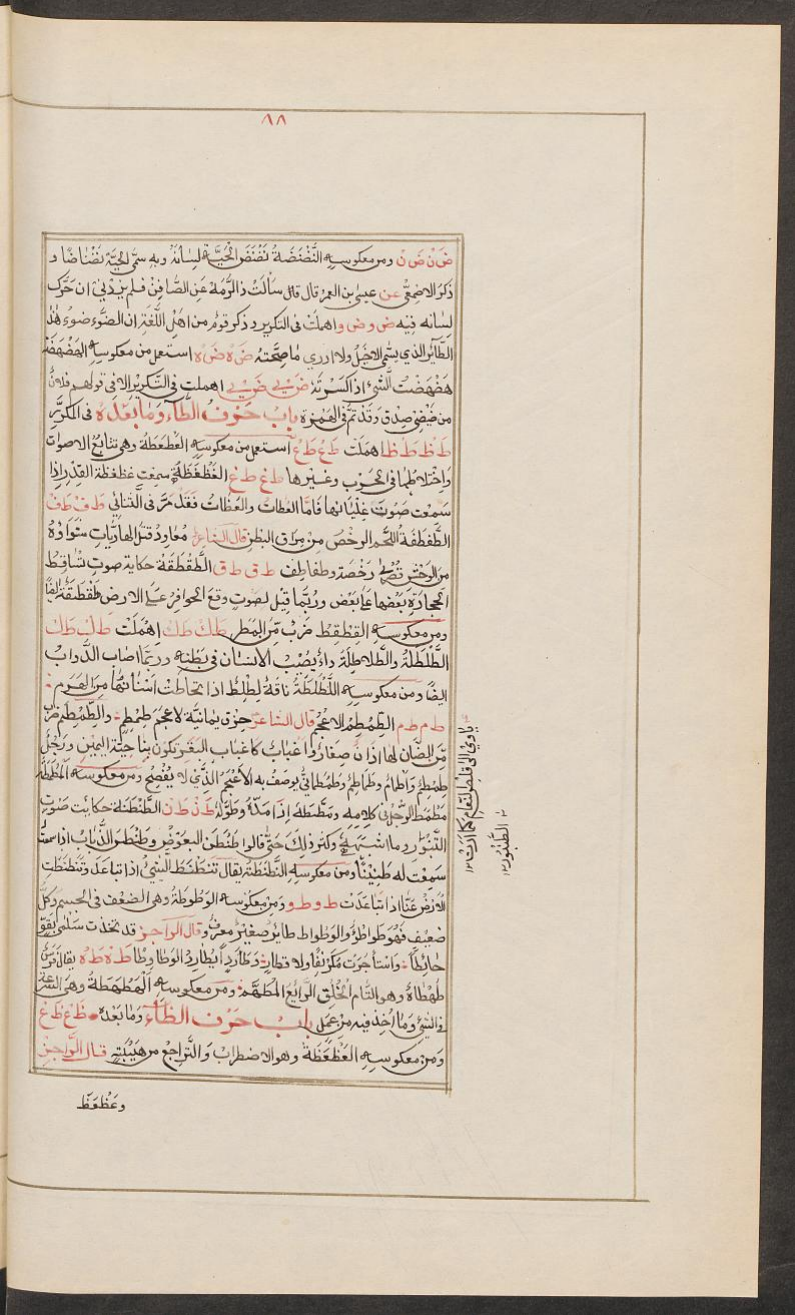 ٨٨
ض ن ض ن ومن معكوسه النَّضْنَضَةُ نَضْنَضَ الحيَّةُ لِسَانَهُ وبه سمّى الحيّة نَضْنَاضًا و
ذكر الاصمعى عن عيسى بن العمر قال قال سألتُ ذا الرّمّة عن النضناض فلم يزدنى ان حَرَّك
لسانه فيه ض و ض و اهملت فى التكرير وذكر قوم من اهل اللغة ان الضّوَء ضوء هذا
الطائر الذي يسمّى الاخيل ولا ادرى ما صحّته ض ه ض ه استعمل من معكوسه الهَضْهَضَة
هَضْهَضْتُ الشَّيْءَ اذا كَسَرْتَه ض ي ض ي اهملت فى التكرير الا فى قولهم فلان
من ضِئضِئ صِدْقٍ وقد تمَّ فى الهمزة باب حَرْف الطَّاء وَمَا بَعْدَهُ فى المكرّر
ط ظ ط ظ اهملت ط ع ط ع استعمل من معكوسه العَطْعَطَة وهى تتابع الاصوات
واختلاطها فى الحرب وغيرها ط غ ط غ الغَطْغَطَةُ سمعت غطغطة القِدْر اذا
سَمِعْت صَوْت غَلَيَانِها فَاَمَّا الغطاط والغُطاط فقد مرّ فى الثنائى ط ف ط ف
الطَّفْطَفَةُ اللَّحم الرخْص من مراق البطن قال الشاعر مُعَاوِدُ قتل الهاديات شِوَاؤهُ
من الوَحْشِ قُصْرى رَخْصَة وطفاطِفُ ط ق ط ق الطَّقْطَقَةُ حكاية صوت تساقط
الحجارة بعضها على بعض وربّما قيل لصَوْت وقع الحوافر على الارض طَقْطَقَة ايضًا
ومن معكوسه القِطْقِط ضَرْب مِّن المطر ط ك ط ك اهملت ط ل ط ل
الطَّلْطَلَةُ والطُّلاطِلَةُ داءٌ يصيب الانسان فى بَطْنِه وربّما اصاب الدَّواب
ايضًا ومن معكوسه اللَّطْلَطَةُ ناقة لِطْلِطٌ اذا تحاطّت اسْنَانُهَا مِنَ الهَرَمِ
ط م ط م الطِّمْطِمُ الاعْجَمُ قال الشاعر حِزَقٌ يَمَانِيَّةٌ لِاعْجَمَ طِمْطِمِ والطِّمْطِم ضرب
مِّن الضَّان لها اذان صغار واغباب كاغباب البقر تكون بناحية اليمن ورجلٌ
طِمْطِمٌ وطُماطِمٌ وطُمْطُمانِىٌّ يوصف به الاعجم الّذى لا يُفْصِح ومن معكوسه المَطْمَطَة
مَطْمَطَ الرَّجُلُ فى كلامه ومطمطه اِذَا مَدَّهُ وطَوَّلَهُ ط ن ط ن الطَّنْطَنَة حكايت صَوْت
الطُّنْبُور وما اشبهه وكثر ذلك حتى قالوا طَنْطَن البعُوض وطَنْطَن الذُّباب اذا سمعت
سَمِعْت له طَنِيْنًا ومن معكوسه النَّطْنَطَةُ يقال تَنَطْنَطَ الشّيْءُ اذا تباعد وتَنَطْنَطَتِ
الارضُ عنّا اذا تَبَاعَدَت ط و ط و وَمِنْ مَعْكُوسِه الوَطْوَطَةُ وهى الضعف فى الجسم وكلّ
ضعيف فهو وَطْواطٌ والوَطْواط طاير صغير معروف وقال الراجز قد تخذت سَلْمَى بِقَوّ
حائطًا واستأجَرَت مُكَرْنِفًا ولا قطا وطارِدًا يطارد الوَطاوطا ط ه ط ه يقال فرس
طَهْطاهٌ وهو التام الخُلُق الرايع المُطَهّم ومن معكوسه الهَطْهَطَةُ وهى السرعة
فى المشى وَمَا اُخِذ فيه مِن عَمَل باب حَرْف الظَّاء وَمَا بَعْدَه ظ ع ظ ع
ومن معكوسه العَظْعَظَةُ وهو الاضطراب والتّراجع من هَيْبَته قال الرَّاجز
وعَظْعَظَ
يأوى الى قلص النعام كما اوت ١٢
الطنبور ١٢